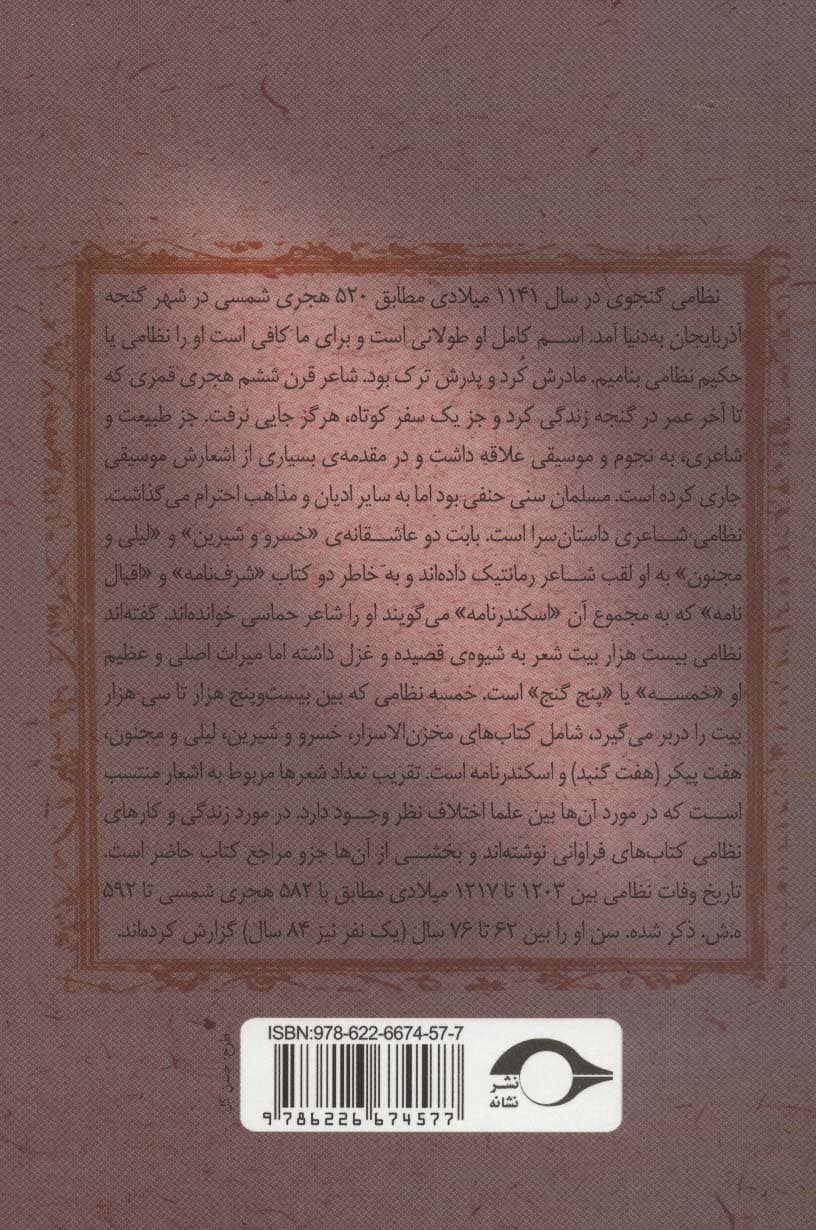 نظامی گنجوی در سال ۱۱۴۱ میلادی مطابق ۵۲۰ هجری شمسی در شهر گنجه
آذربایجان به‌دنیا آمد. اسـم کامل او طولانی است و برای ما کافی است او را نظامی یا
حکیم نظامی بنامیم. مادرش کُرد و پدرش ترک بود. شاعر قرن ششم هجری قمری که
تا آخر عمر در گنجه زندگی کرد و جز یک سفر کوتاه، هرگز جایی نرفت. جز طبیعت و
شاعری، به نجوم و موسیقی علاقه داشت و در مقدمه‌ی بسیاری از اشعارش موسیقی
جاری کرده است. مسلمان سنی حنفی بود اما به سایر ادیان و مذاهب احترام می‌گذاشت.
نظامی شـاعری داستان‌سرا است. بابت دو عاشـقانه‌ی «خسرو و شیرین» و «لیلی و
مجنون» به او لقب شـاعر رمانتیک داده‌اند و به خاطر دو کتاب «شرف‌نامه» و «اقبال
نامه» که به مجموع آن «اسکندرنامه» می‌گویند او را شاعر حماسی خوانده‌اند. گفته‌اند
نظامی بیست هزار بیت شعر به شیوه‌ی قصیده و غزل داشته اما میراث اصلی و عظیم
او «خمسـه» یا «پنج گنج» است. خمسه نظامی که بین بیست‌وپنج هزار تا سی هزار
بیت را دربر می‌گیرد، شامل کتاب‌های مخزن‌الاسرار، خسرو و شیرین، لیلی و مجنون،
هفت پیکر (هفت گنبد) و اسکندرنامه است. تقریب تعداد شعرها مربوط به اشعار منتسب
اسـت که در مورد آن‌ها بین علما اختلاف نظر وجـود دارد. در مورد زندگی و کارهای
نظامی کتاب‌های فراوانی نوشته‌اند و بخشـی از آن‌ها جزو مراجع کتاب حاضر است.
تاریخ وفات نظامی بین ۱۲۰۳ تا ۱۲۱۷ میلادی مطابق با ۵۸۲ هجری شمسی تا ۵۹۲
ه.ش. ذکر شده. سن او را بین ۶۲ تا ۷۶ سال (یک نفر نیز ۸۴ سال) گزارش کرده‌اند.
ISBN:978-622-6674-57-7
9 786226 674577
نشر
نشانه
طرح